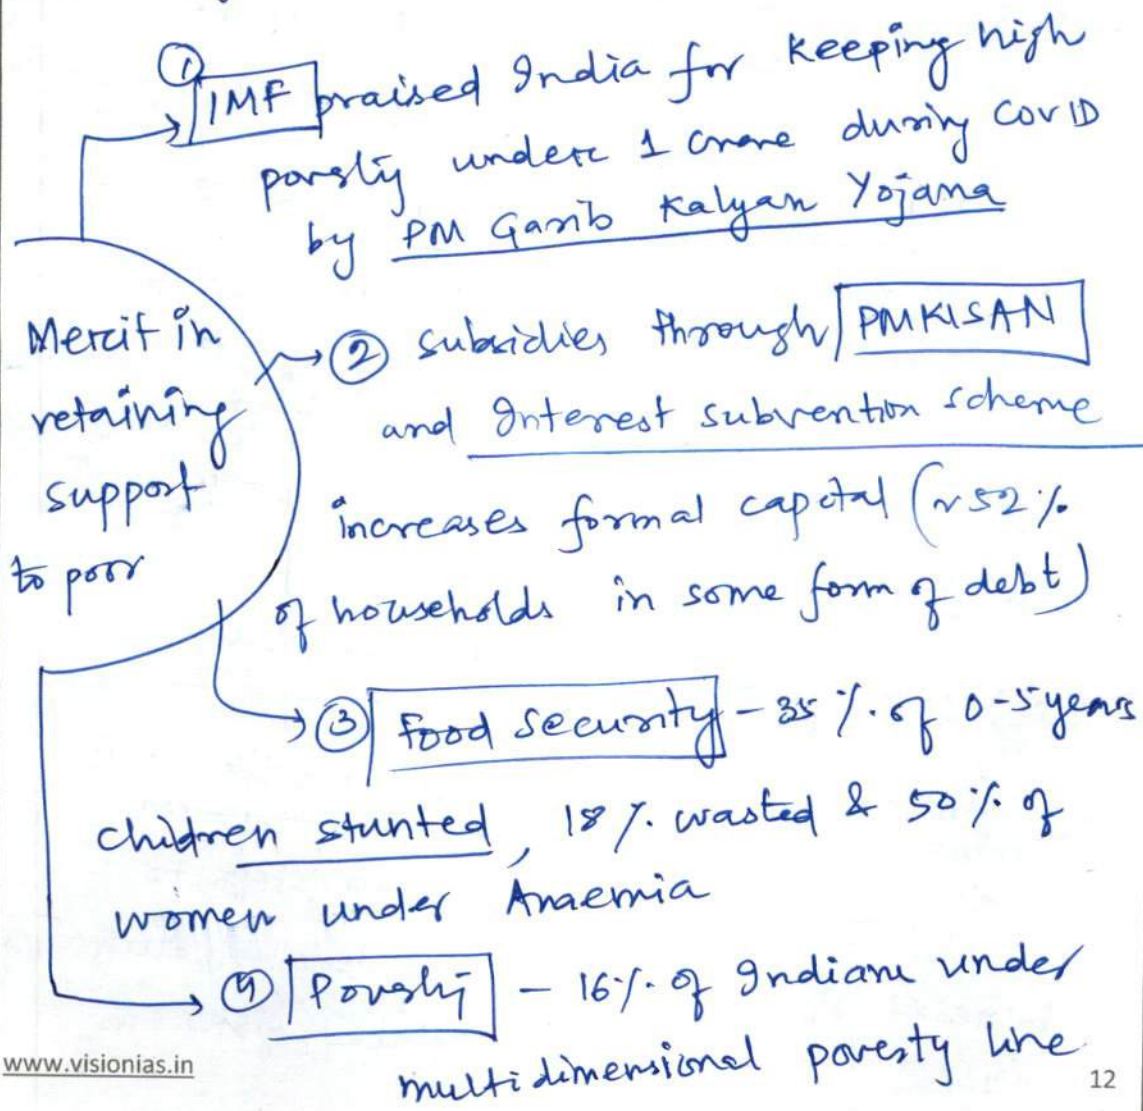 ①
IMF praised India for keeping high
poverty under 1 crore during COVID
by PM Garib Kalyan Yojana
Merit in
retaining
support
to poor
② subsidies through PMKISAN
and Interest subvention scheme
increases formal capital (~52%
of households in some form of debt)
③ Food security - 35% of 0-5 years
children stunted, 18% wasted & 50% of
women under Anaemia
④ Poverty - 16% of Indians under
multidimensional poverty line
www.visionias.in
12